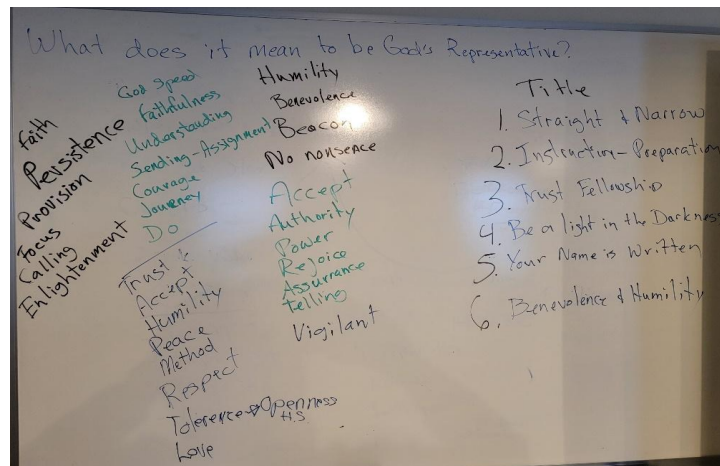 What does it mean to be God's Representative?
Faith
Persistence
Provision
Focus
Calling
Enlightenment
God Speed
Faithfulness
Understanding
Sending-Assignment
Courage
Journey
Do
Trust &
Accept
Humility
Peace
Method
Respect
Tolerence & Openness
HS
Love
Humility
Benevolence
Beacon
No nonsence
Accept
Authority
Power
Rejoice
Assurrance
Telling
Vigilant
Title
1. Straight & Narrow
2. Instruction-Preparation
3. Trust Fellowship
4. Be a light in the Darkness
5. Your Name is Written
6. Benevolence & Humility